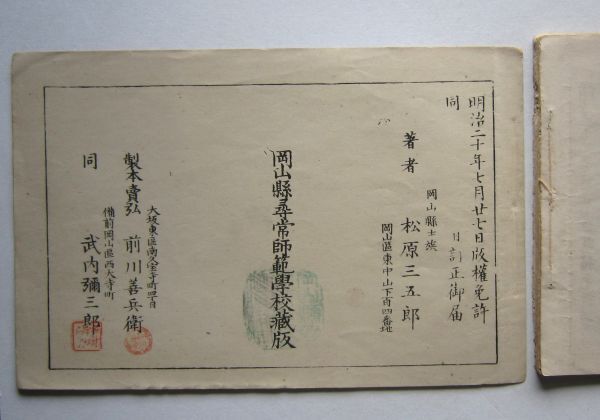 明治二十年七月廿七日版權免許
同　日訂正御届
岡山縣士族
著者　松原三五郎
岡山區東中山下百四番地
岡山縣尋常師範學校藏版
大坂東區南久宝寺町四丁目
製本賣弘　前川善兵衛
備前岡山區西大寺町
同　武内彌三郎